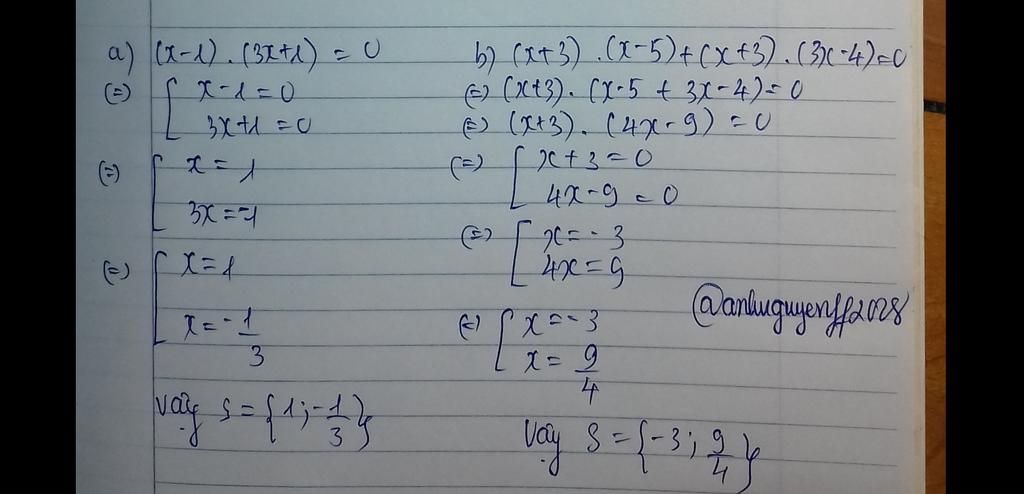 a) (x-1).(3x+1) = 0
(=) [ x-1=0
3x+1=0
(=) [ x=1
3x=-1
(=) [ x=1
x=-1/3
Vậy S={1;-1/3}
b) (x+3).(x-5)+(x+3).(3x-4)=0
(=) (x+3).(x-5+3x-4)=0
(=) (x+3).(4x-9)=0
(=) [ x+3=0
4x-9=0
(=) [ x=-3
4x=9
(=) [ x=-3
x=9/4
Vậy S={-3;9/4}